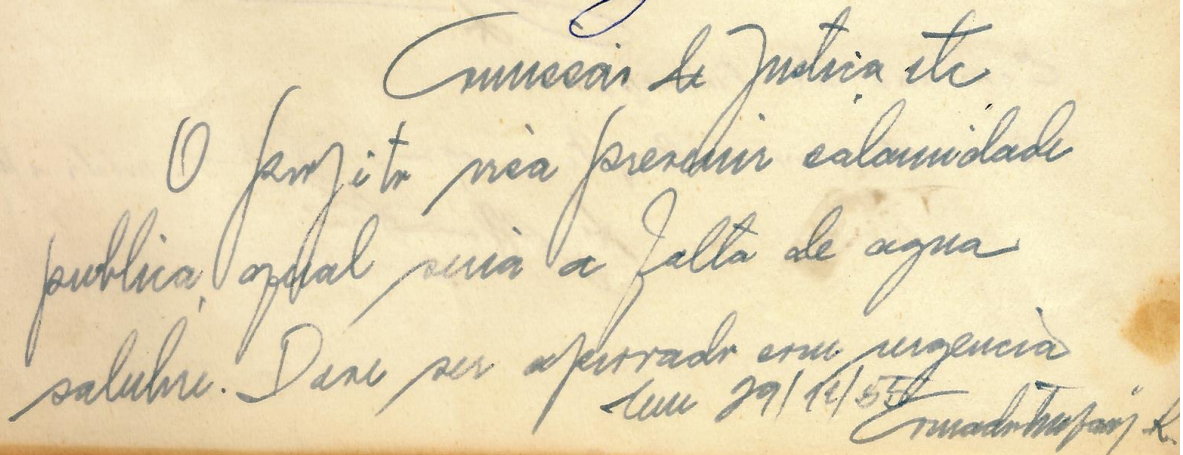 Comissão de Justiça etc
O projeto visa prevenir calamidade
publica, qual seria a falta de agua
salubre. Deve ser aprovado com urgencia
em 29/12/55